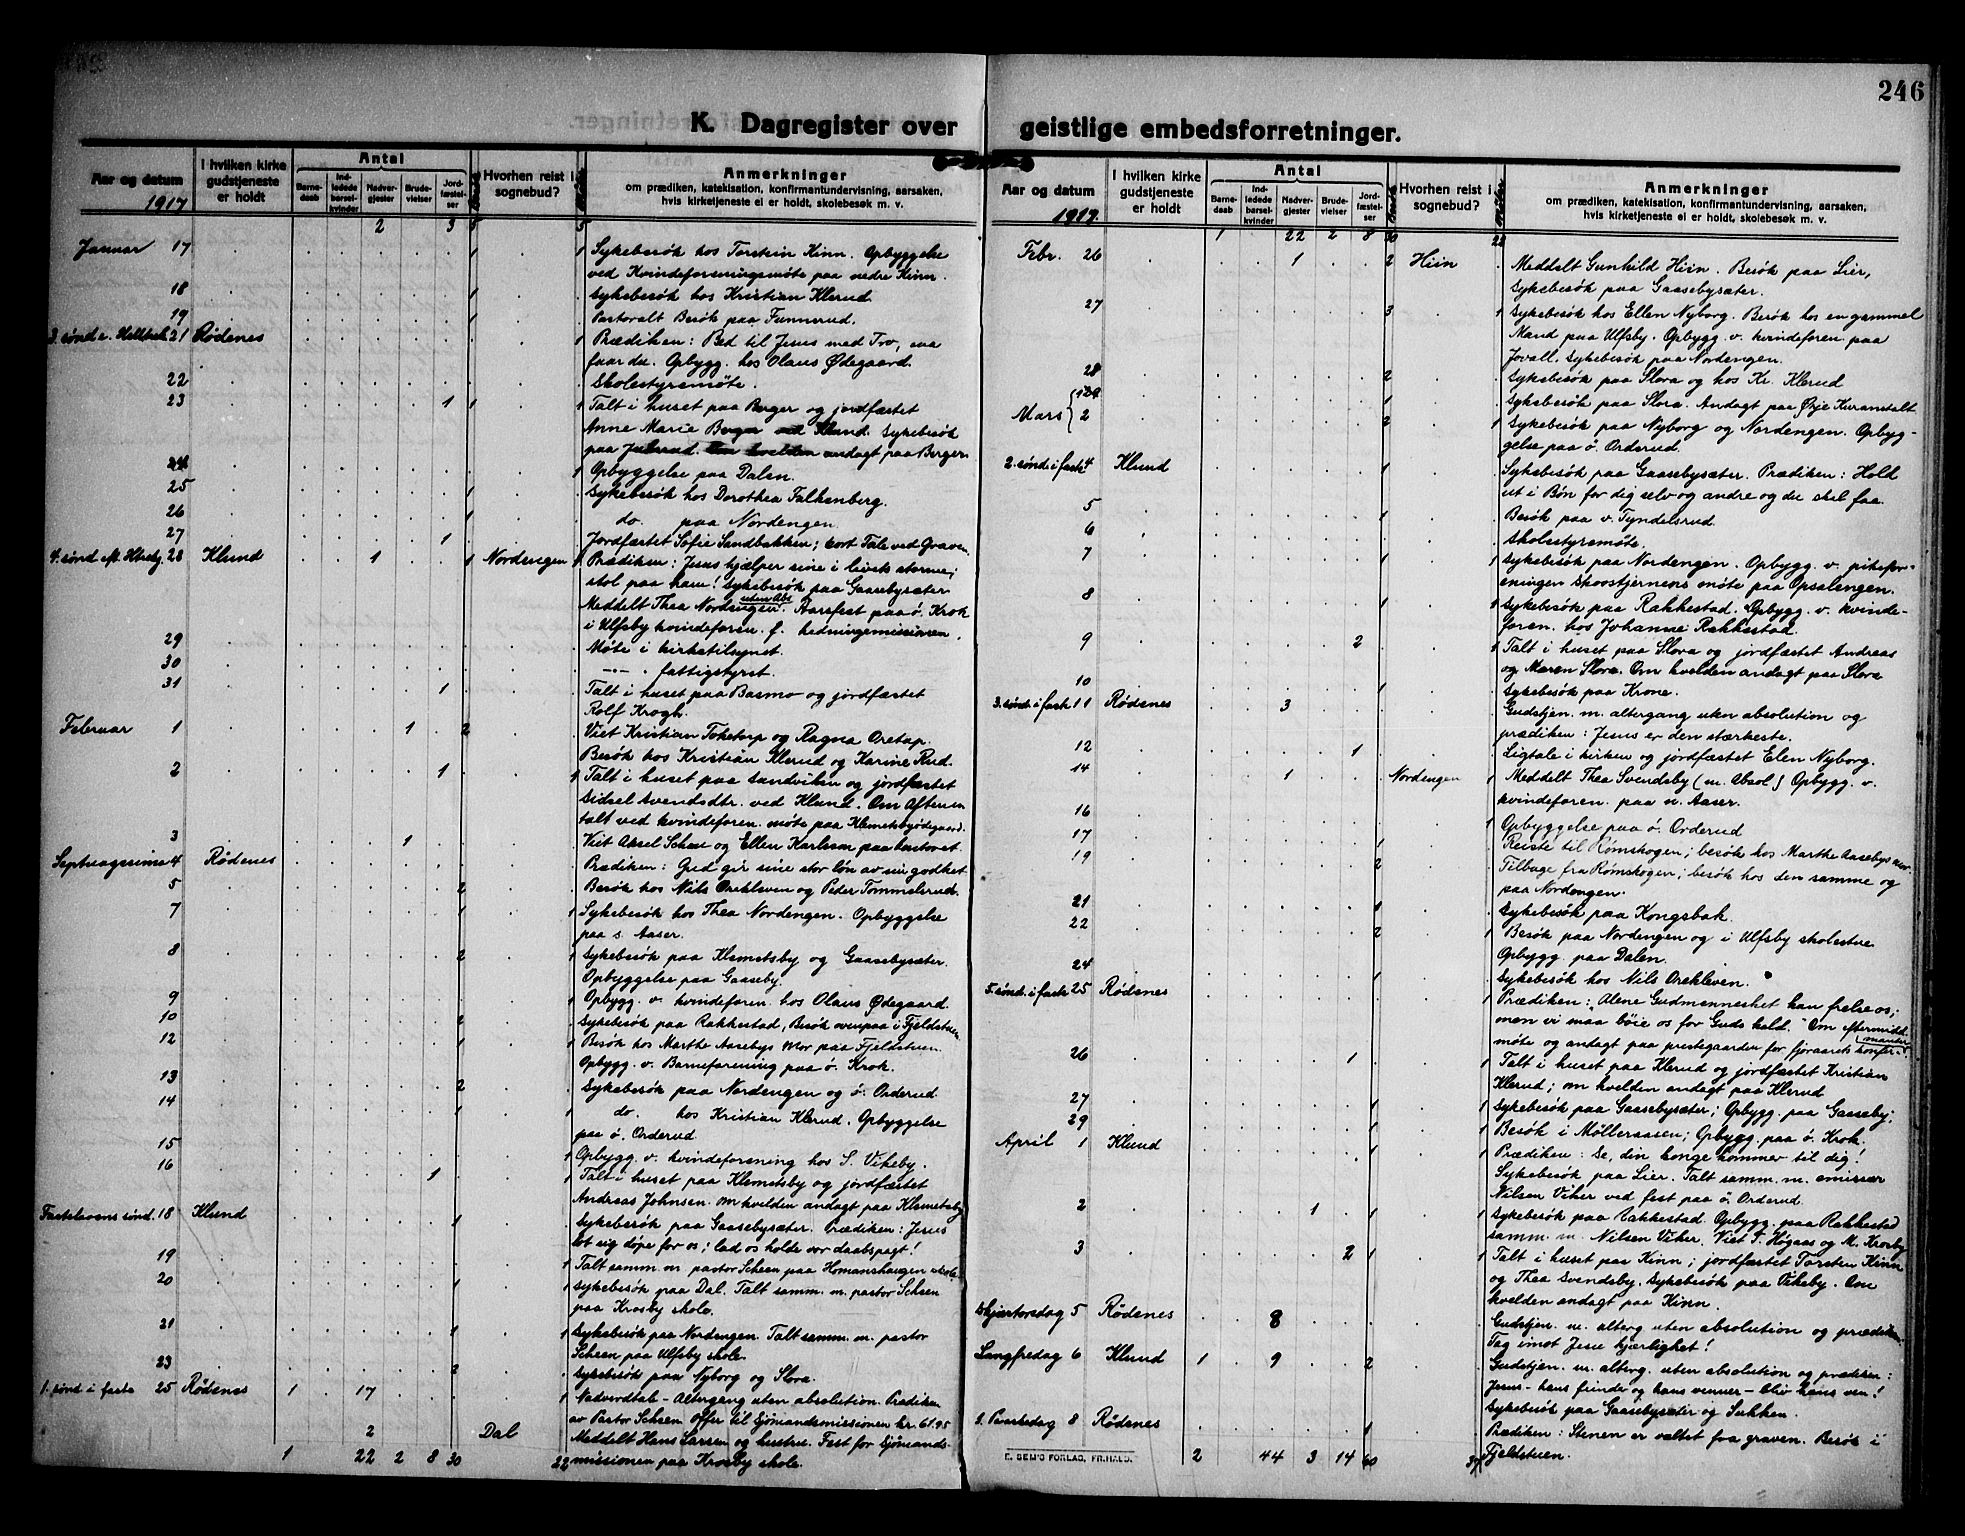 246
K. Dagregister over geistlige embedsforretninger.
Aar og datum
1917
I hvilken kirke gudstjeneste er holdt
Antal
Barnedaab
Indledede barselkvinder
Nadvergjester
Brudevielser
Jordfæstelser
Hvorhen reist i sognebud?
Anmerkninger
om prædiken, katekisation, konfirmantundervisning, aarsaken,
hvis kirketjeneste ei er holdt, skolebesøk m. v.
2 3 5 5
Januar 17 1 1 Sykebesøk hos Torstein Kinn. Opbyggelse
ved Kvindeforeningsmøte paa nedre Kinn.
18 1 Sykebesøk hos Kristian Klerud.
19 1 Pastoralt Besøk paa Funnerud.
3. sønd e. Rødenes 21 1 Prædiken: Bed til Jesus med Tro, saa
faar du. Opbygg. hos Olaus Ødegaard.
22 Skolestyrsmøte.
23 1 1 1 Talt i huset paa Berger og jordfæstet
Anne Marie Klund. Sykebesøk
paa Julsrud. andagt paa Berger.
24 1 Opbyggelse paa Dalen.
25 1 Sykebesøk hos Dorothea Falkenberg.
26 1 do. paa Nordengen.
27 1 Jordfæstet Sofie Sandbakken; kort Tale ved Graven.
4. sønd 28 Klund 1 1 Nordengen 1 Prædiken: Jesus hjælper sine i livets storme;
stol paa ham! Sykebesøk paa Gaasebysæter
Meddelt Thea Nordengen uten Abs. Aarsfest paa ø. Krok
i Ulfsby kvindeforen. f. hedningemissionen.
29 Møte i kirketilsynet.
30 —"— . fattigstyret.
31 1 Talt i huset paa Basmo og jordfæstet
Rolf Krogh.
Februar 1 1 2 Viet Kristian Toketorp og Ragna Oretap.
Besøk hos Kristian Klerud og Karine Rud.
2 1 1 Talt i huset paa Sandviken og jordfæstet
Sidsel Svendsdtr. ved Klund. Om Aftenen
talt ved kvindeforen. møte paa Klemetsbyødegaard.
3 1 Viet Aksel Schou og Ellen Karlsson paa kontoret.
Septuagesima 4 Rødenes Prædiken: Gud gir sine stor løn av sin godhet.
5 2 Besøk hos Nils Orekleven og Peder Tommelsrud.
7 1 1 Sykebesøk hos Thea Nordengen. Opbyggelse
paa s. Aaser.
8 2 Sykebesøk paa Klemetsby og Gaasebysæter.
Opbyggelse paa Gaaseby.
9 1 Opbygg. v. kvindeforen. hos Olaus Ødegaard.
10 2 Sykebesøk paa Rakkestad, Besøk ovenpaa i Fjeldstuen.
12 1 1 Besøk hos Marthe Aasebys Mor paa Fjeldstuen.
Opbygg. v. Barneforening paa ø. Krok.
13 2 Sykebesøk paa Nordengen og ø. Orderud.
14 1 1 do. hos Kristian Klerud. Opbyggelse
paa ø. Orderud
15 1 Opbygg. v. kvindeforening hos S. Vikeby.
16 1 1 Talt i huset paa Klemetsby og jordfæstet
Andreas Johnsen. Om kvelden andagt paa Klemetsby
Fastelavens sønd. 18 Klund 1 Sykebesøk paa Gaasebysæter. Prædiken: Jesus
lot sig døpe for os; lad os holde vor daabspagt!
19 1 Talt samm. m. pastor Scheen paa Homanshaugen skole.
20 1 1 Sykebesøk paa Dal. Talt samm. m. pastor Scheen
paa Krosby skole.
21 1 1 Sykebesøk paa Nordengen. Talt samm. m. pastor
Scheen paa Ulfsby skole.
23 2 Sykebesøk paa Nyborg og Slora.
1. sønd i faste 25 Rødenes 1 17 1 Nadverdtale - Altergang uten absolution. Prædiken
av Pastor Scheen. Offer til Sjömandsmissionen kr. 61.95
2 Dal Meddelt Hans Larsen og hustru. Fest for Sjömands-
1 22 2 8 30 22 missionen paa Krosby skole.
Aar og datum
1917.
I hvilken kirke gudstjeneste er holdt
Antal
Barnedaab
Indledede barselkvinder
Nadvergjester
Brudevielser
Jordfæstelser
Hvorhen reist i sognebud?
Anmerkninger
om prædiken, katekisation, konfirmantundervisning, aarsaken,
hvis kirketjeneste ei er holdt, skolebesøk m. v.
1 22 2 8 30 22
Febr. 26 1 2 Hiin Meddelt Gunhild Hiin. Besøk paa Lier,
Sykebesøk paa Gaasebysæter.
27 3 1 Sykebesøk hos Ellen Nyborg. Besøk hos en gammel
Mand paa Ulfsby. Opbygg. v. kvindeforen. paa
Jovall. Sykebesøk paa Nordengen.
28 2 Sykebesøk paa Slora og hos Kr. Klerud
1 1 Sykebesøk paa Slora. Andagt paa Ørje Kuranstalt
Mars 2 2 1 Sykebesøk paa Nyborg og Nordengen. Opbyg-
gelse paa ø. Orderud.
2. sønd i faste 4 Klund 1 Sykebesøk paa Gaasebysæter. Prædiken: Hold
ut i Bøn for dig selv og andre og du skal faa
5 1 Besøk paa v. Tyndelsrud.
6 Skolestyrsmøte.
7 1 1 Sykebesøk paa Nordengen. Opbygg. v. pikefor-
eningen Skoostjernens møte paa Opsalengen.
8 1 1 Sykebesøk paa Rakkestad. Opbygg. v. kvinde-
foren. hos Johanne Rakkestad.
9 2 1 Talt i huset paa Slora og jordfæstet Andreas
og Maren Slora. Om kvelden andagt paa Slora
10 1 Sykebesøk paa Krone.
3. sønd. i faste 11 Rødenes 3 Gudstjen. m. altergang uten absolution og
prædiken: Jesus er den stærkeste.
12 1 Ligtale i kirken og jordfæstet Elen Nyborg.
14 1 Nordengen 1 Meddelt Thea Svendsby (m. Absol) Opbygg. v.
kvindeforen. paa n. Aaser.
16 1 Opbyggelse paa ø. Orderud
17 1 Reiste til Rømskogen; besøk hos Marthe Aasebys mor.
19 2 Tilbage fra Rømskogen; besøk hos den samme og
paa Nordengen.
21 1 Sykebesøk paa Kongsbak.
22 2 1 Besøk paa Nordengen og i Ulfsby skolestue
Opbygg. paa Dalen.
24 1 Sykebesøk hos Nils Orekleven.
5. sønd. i faste 25 Rødenes 1 Prædiken: Alene Gudmennesket kan frelse os;
men vi maa bøie os for Guds kald. Om eftermidd.
møte og andagt paa prestegaarden for fjoraarets konfir-
manter
26 1 1 Talt i huset paa Klerud og jordfæstet Kristian
Klerud; om kvelden andagt paa Klerud
27 1 1 Sykebesøk paa Gaasebysæter; Opbygg. paa Gaaseby.
29 1 1 Besøk i Møllersaasen; Opbygg. paa ø. Krok.
April 1 Klund 1 1 Prædiken: Se, din konge kommer til dig!
Sykebesøk paa Lier. Talt samm. m. emissær
Nilsen Viker ved fest paa ø. Orderud.
2 1 1 1 Sykebesøk paa Rakkestad. Opbygg. paa Rakkestad
samm. m. Nilsen Viker. Viet T. Høgaas og M. Krosby
3 2 1 1 Talt i huset paa Kinn; jordfæstet Torsten Kinn
og Thea Svendsby. Sykebesøk paa Vikeby. Om
kvelden andagt paa Kinn.
Skjærtorsdag 5 Rødenes 8 Gudstjen. m. alterg uten absolution og prædiken
Tag imot Jesu kjærlighet!
Langfredag 6 Klund 1 9 2 Gudstjen. m. alterg. uten absolution og prædiken:
Jesus - hans fiender og hans venner - bliv hans ven!
Sykebesøk paa Gaasebysæter og Sukken.
2. Paaskedag 8 Rødenes 1 Prædiken: Stenen er valtet fra graven. Besøk i
E. SEM'S FORLAG, FR.HALD. 2 44 3 14 60 37 Fjeldstuen.